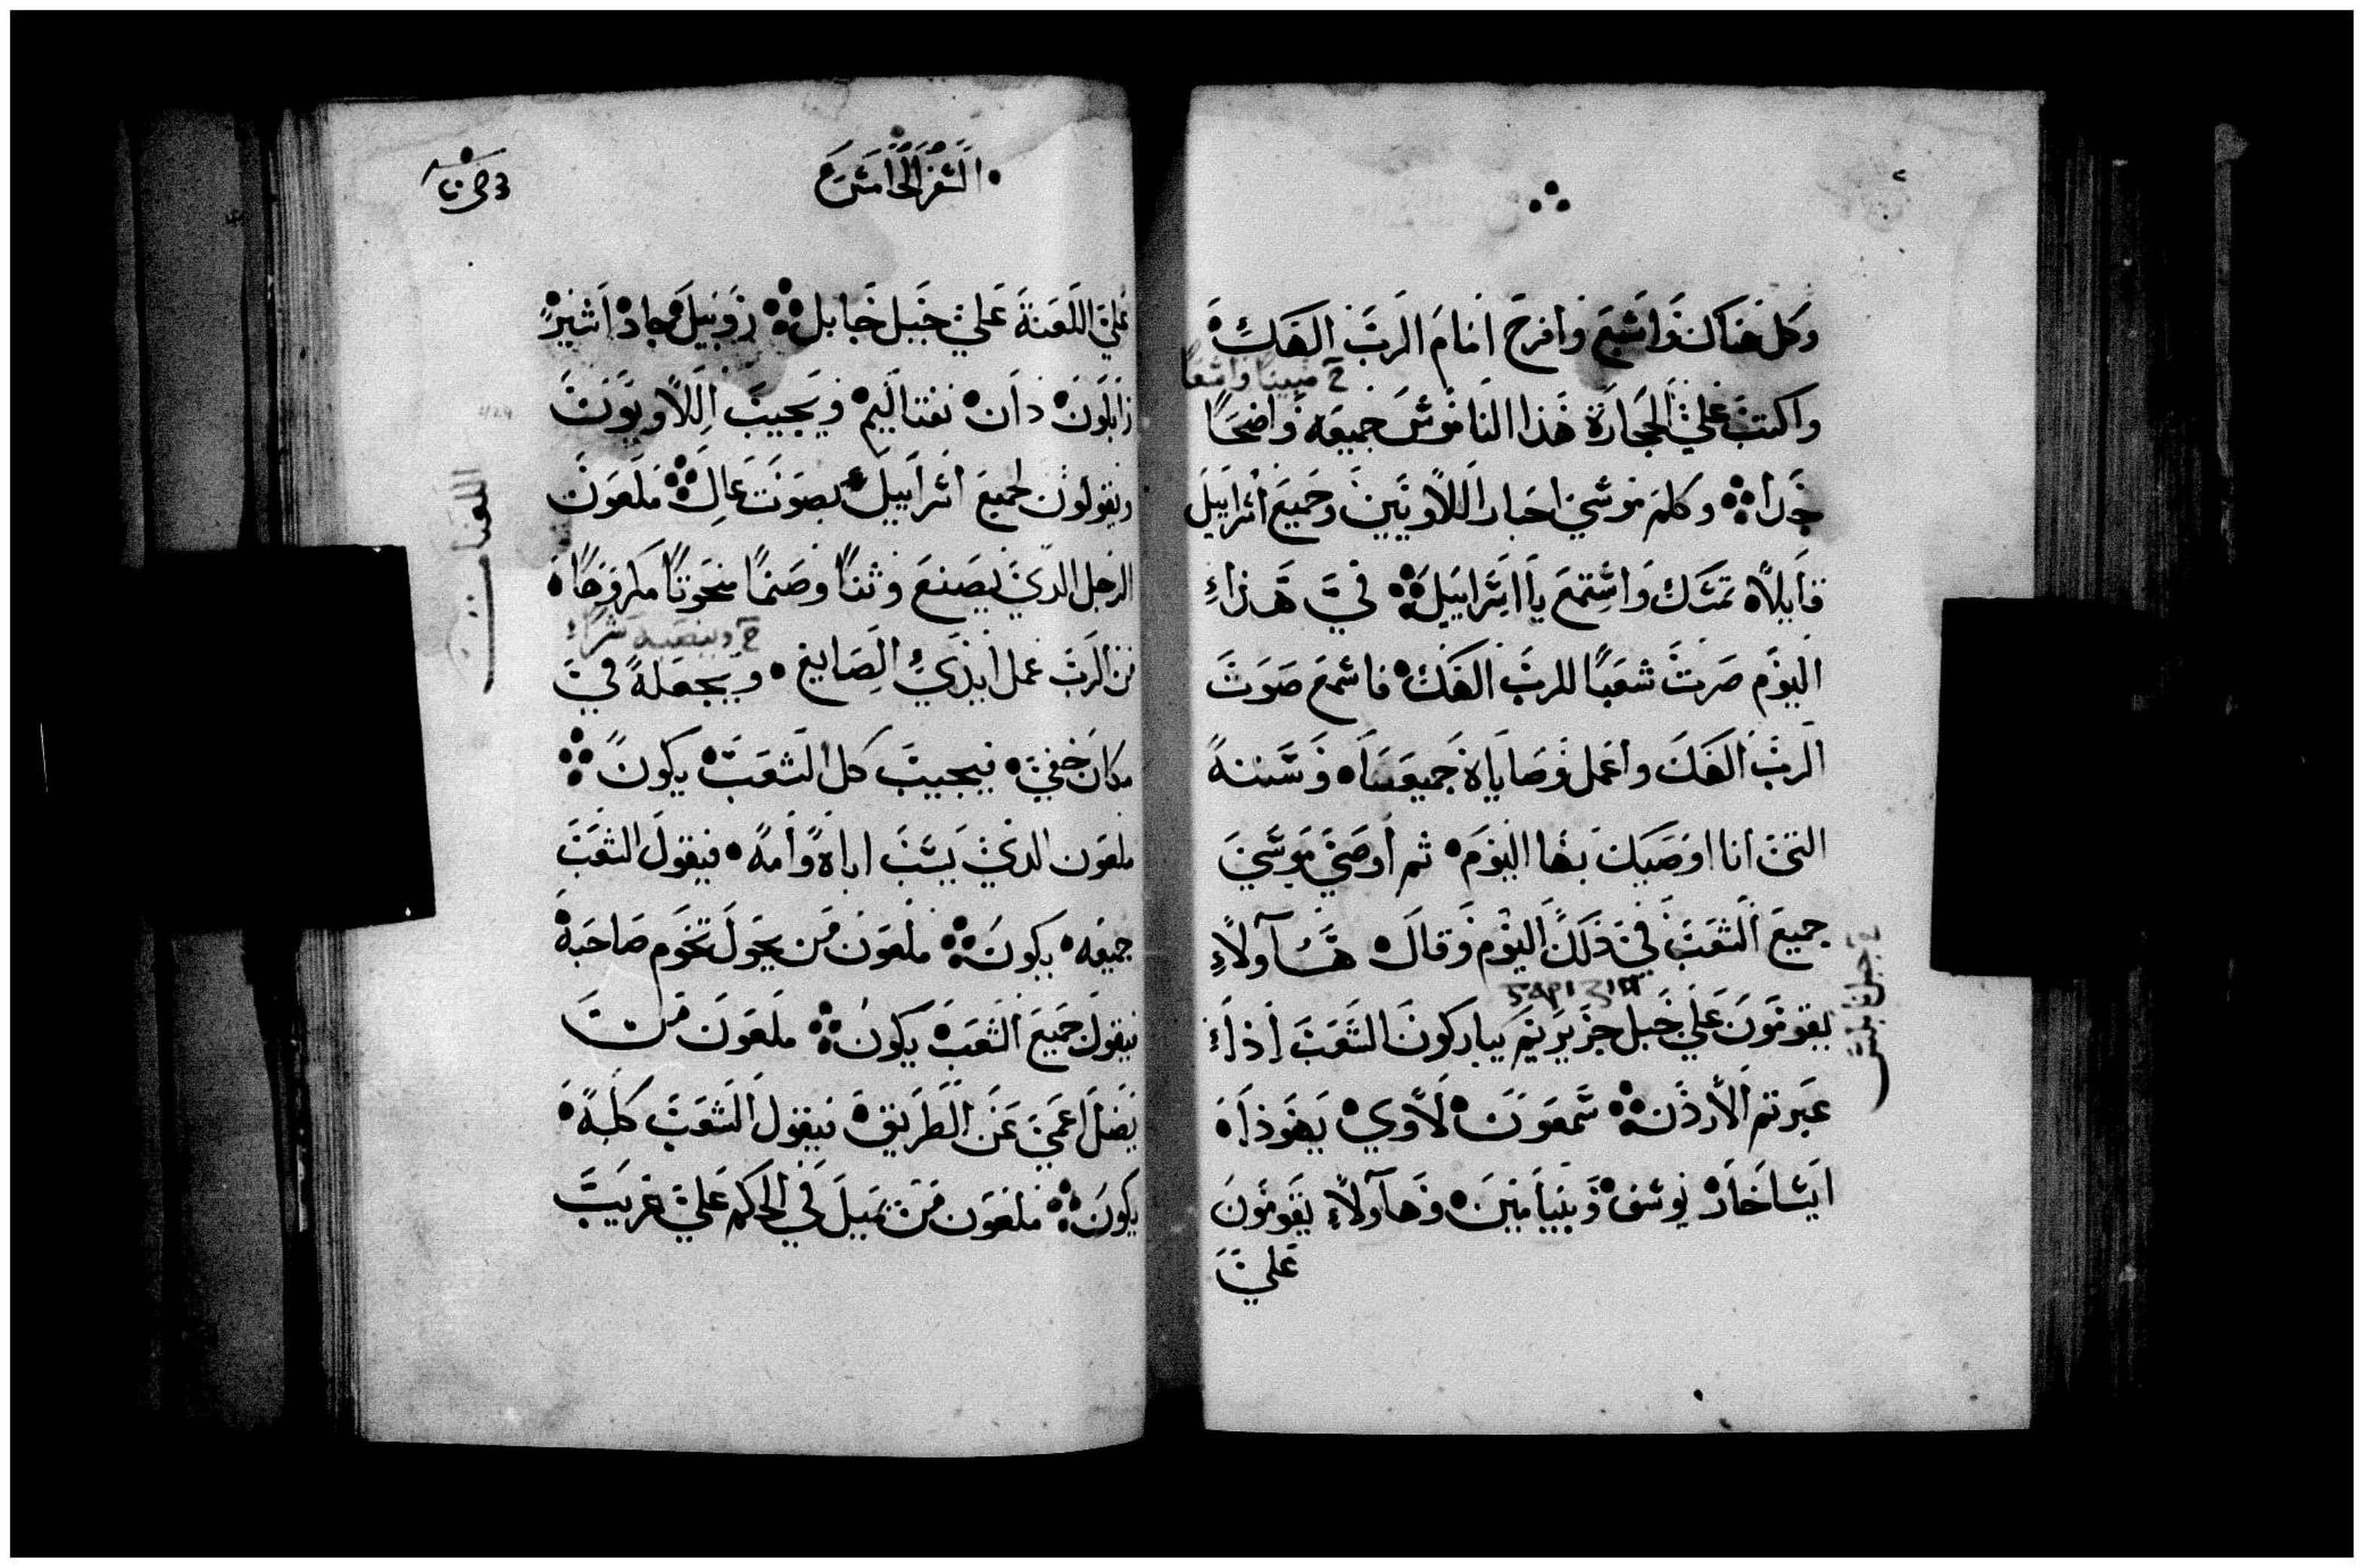 وكل هناك واشبع وافرح امام الرب الهك
خ مبينا واسعا
واكتب علي الحجارة هذا الناموس جميعه واضحا
جدا وكلم موسي احبار اللاويين وجميع اسراييل
قايلاه تمسك واستمع يا اسراييل في هذاء
اليوم صرت شعبا للرب الهك فاسمع صوت
الرب الهك واعمل وصاياه جميعها وسننه
التي انا اوصيك بها اليوم ثم اوصي موسي
جميع الشعب في ذلك اليوم وقال هاولاء
يقومون علي جبل جزيريم يباركون الشعب اذاء
عبرتم الأردن شمعون لاوي يهوذا
ايساخار يوسف وبنيامين وهاولاء يقومون
علي
السفر الخامس
علي اللعنة علي جبل جايبل روبيل جاد اشير
زابلون دان نفتاليم ويجيب اللاويون
ويقولون لجميع اسراييل بصوت عال ملعون
اللعنات
الرجل الذي يصنع وثنا وصنما منحوتا مكروها
خ وينصبه سرا
من الرب عمل ايدي الصايغ ويجعله في
مكان خفي فيجيب كل الشعب يكون
ملعون الذي يسب اباه وامه فيقول الشعب
جميعه يكون ملعون من يحول تخوم صاحبه
فيقول جميع الشعب يكون ملعون من
يضل اعمي عن الطريق فيقول الشعب كله
يكون ملعون من يميل في الحكم علي غريب